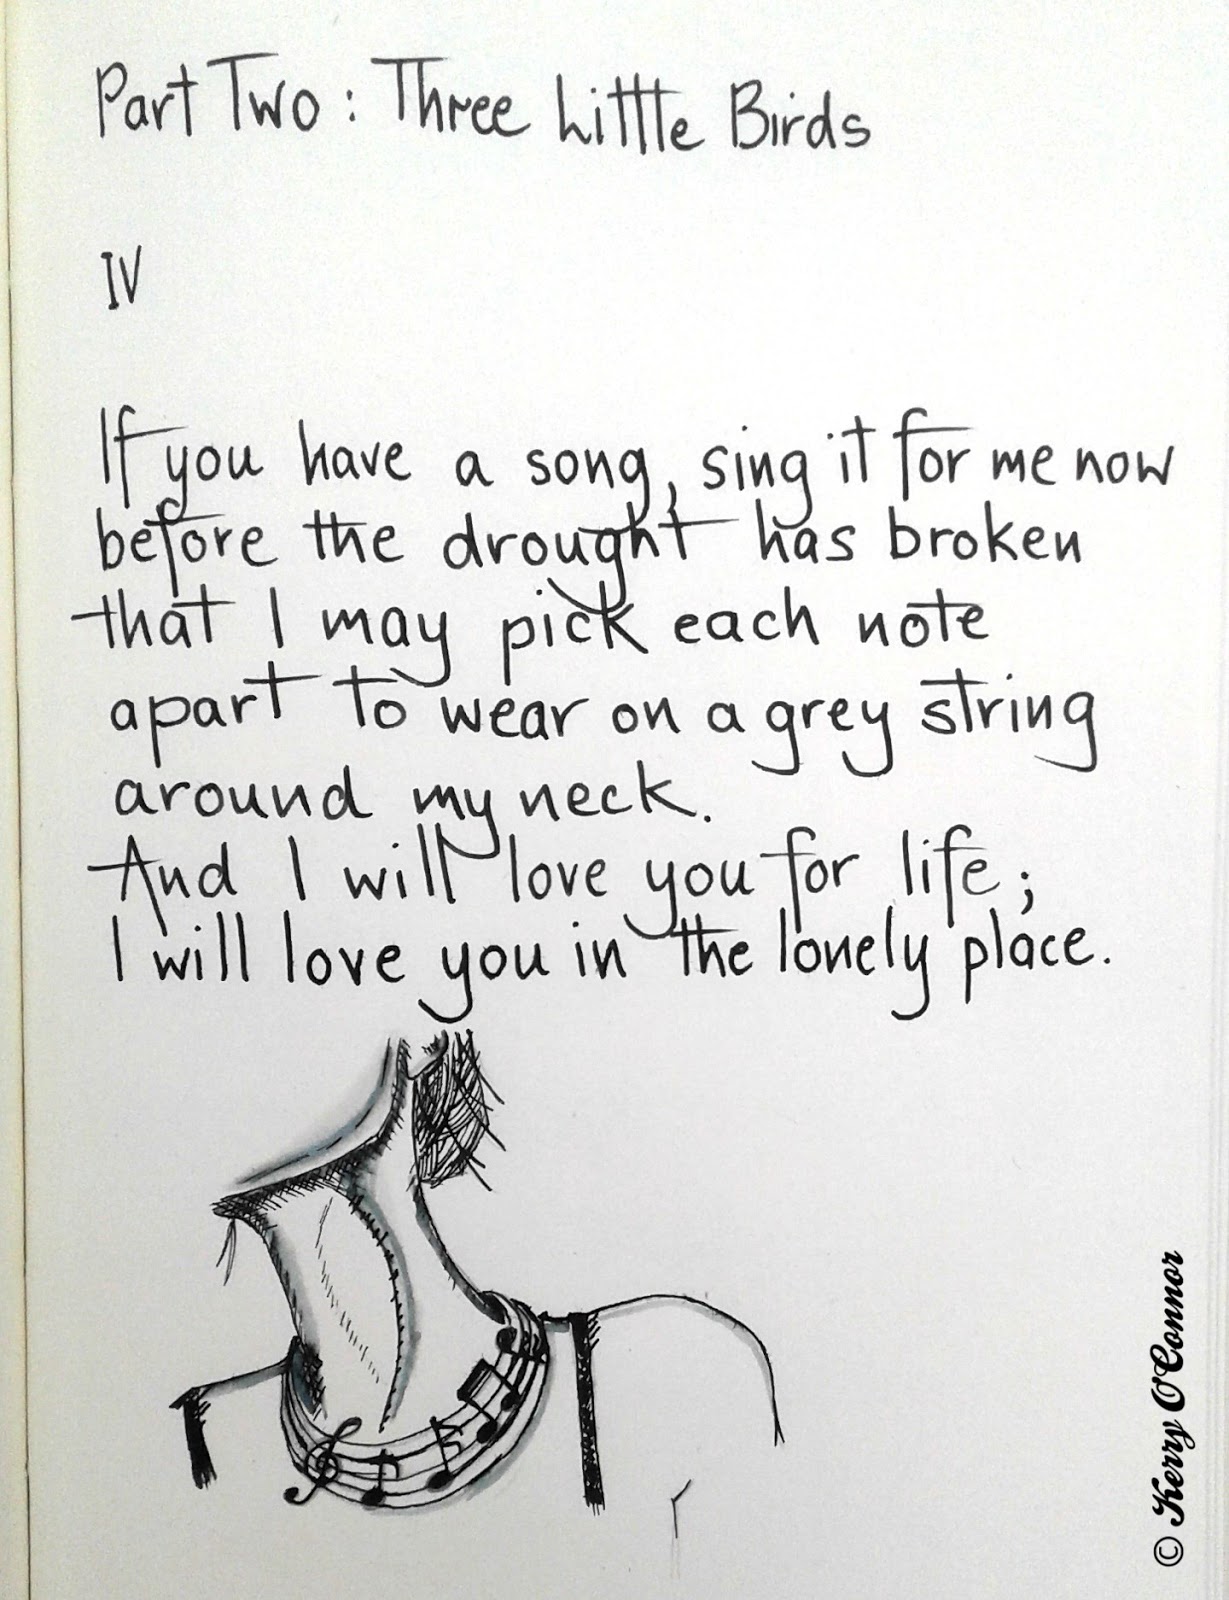 Part Two: Three Little Birds
IV
If you have a song, sing it for me now
before the drought has broken
that I may pick each note
apart to wear on a grey string
around my neck.
And I will love you for life;
I will love you in the lonely place.
© Kerry O'Connor